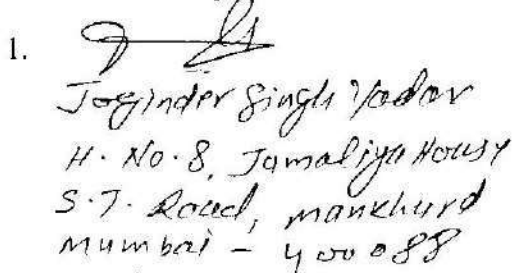 1.
Joginder Singh Yadav
H. No. 8, Jamaliya House
S.T. Road, mankhurd
mumbai - 400088